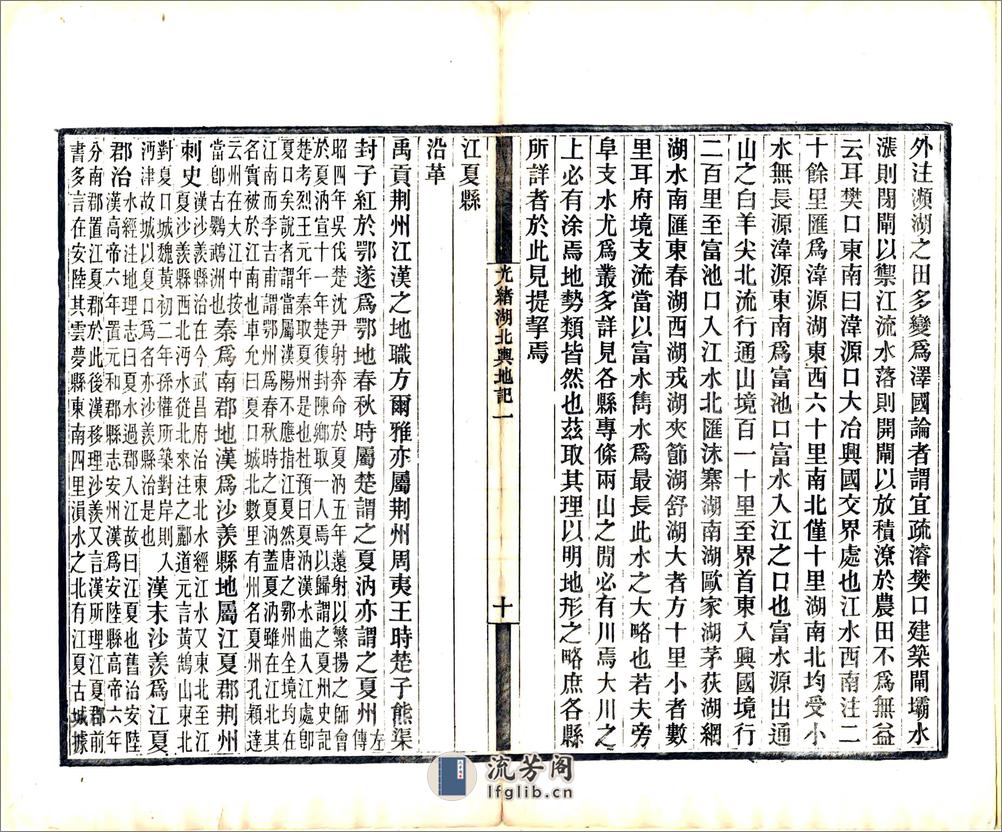 外注瀕湖之田多變爲澤國論者謂宜疏濬樊口建築閘壩水
漲則閉閘以禦江流水落則開閘以放積潦於農田不爲無益
云耳樊口東南曰湋源口大冶興國交界處也江水西南注二
十餘里匯爲湋源湖東西六十里南北僅十里湖南北均受小
水無長源湋源東南爲富池口富水入江之口也富水源出通
山之白羊尖北流行通山境百一十里至界首東入興國境行
二百里至富池口入江水北匯沫寨湖南湖歐家湖茅荻湖網
湖水南匯東春湖西湖戎湖夾節湖舒湖大者方十里小者數
里耳府境支流當以富水雋水爲最長此水之大略也若夫旁
阜支水尤爲叢多詳見各縣專條兩山之閒必有川焉大川之
上必有涂焉地勢類皆然也茲取其理以明地形之略庶各縣
所詳者於此見提挈焉
光緒湖北輿地記一
十
江夏縣
沿革
禹貢荆州江漢之地職方爾雅亦屬荆州周夷王時楚子熊渠
封子紅於鄂遂爲鄂地春秋時屬楚謂之夏汭亦謂之夏州左傳
昭四年吳伐楚沈尹射奔命於夏汭五年薳射以繁揚之師會
於夏汭宣十一年楚復封陳鄉取一人焉以歸謂之夏州史記
楚考烈王元年秦取夏州是也杜預曰夏汭漢水曲入江處卽
夏口矣說者謂當屬漢陽不應指江夏然唐之鄂州全境均在
江南而李吉甫謂鄂州爲春秋時之夏汭蓋夏汭雖在江北其
名實被於江南也車允曰夏口城北數里有州名夏州孔穎達
云州在大江中按
當卽古鸚鵡洲也秦爲南郡地漢爲沙羨縣地屬江夏郡荆州
刺史漢沙羨縣治在今武昌府治東北水經江水又東北至江
夏沙羨縣西北沔水從北來注之酈道元言黃鵠山東北
對夏口城魏黃初二年孫權所築對岸則入
沔津故城以夏口爲名亦沙羨縣治是也漢末沙羨爲江夏
郡治水經注地理志曰夏水過郡入江故曰江夏也舊治安陸
漢高帝六年置元和郡縣志安州漢爲安陸縣高帝六年
分南郡置江夏郡於此後漢移理沙羨又言漢所理江夏郡前
書多言在安陸其雲夢縣東南四里溳水之北有江夏古城據
流芳阁
lfglib.cn